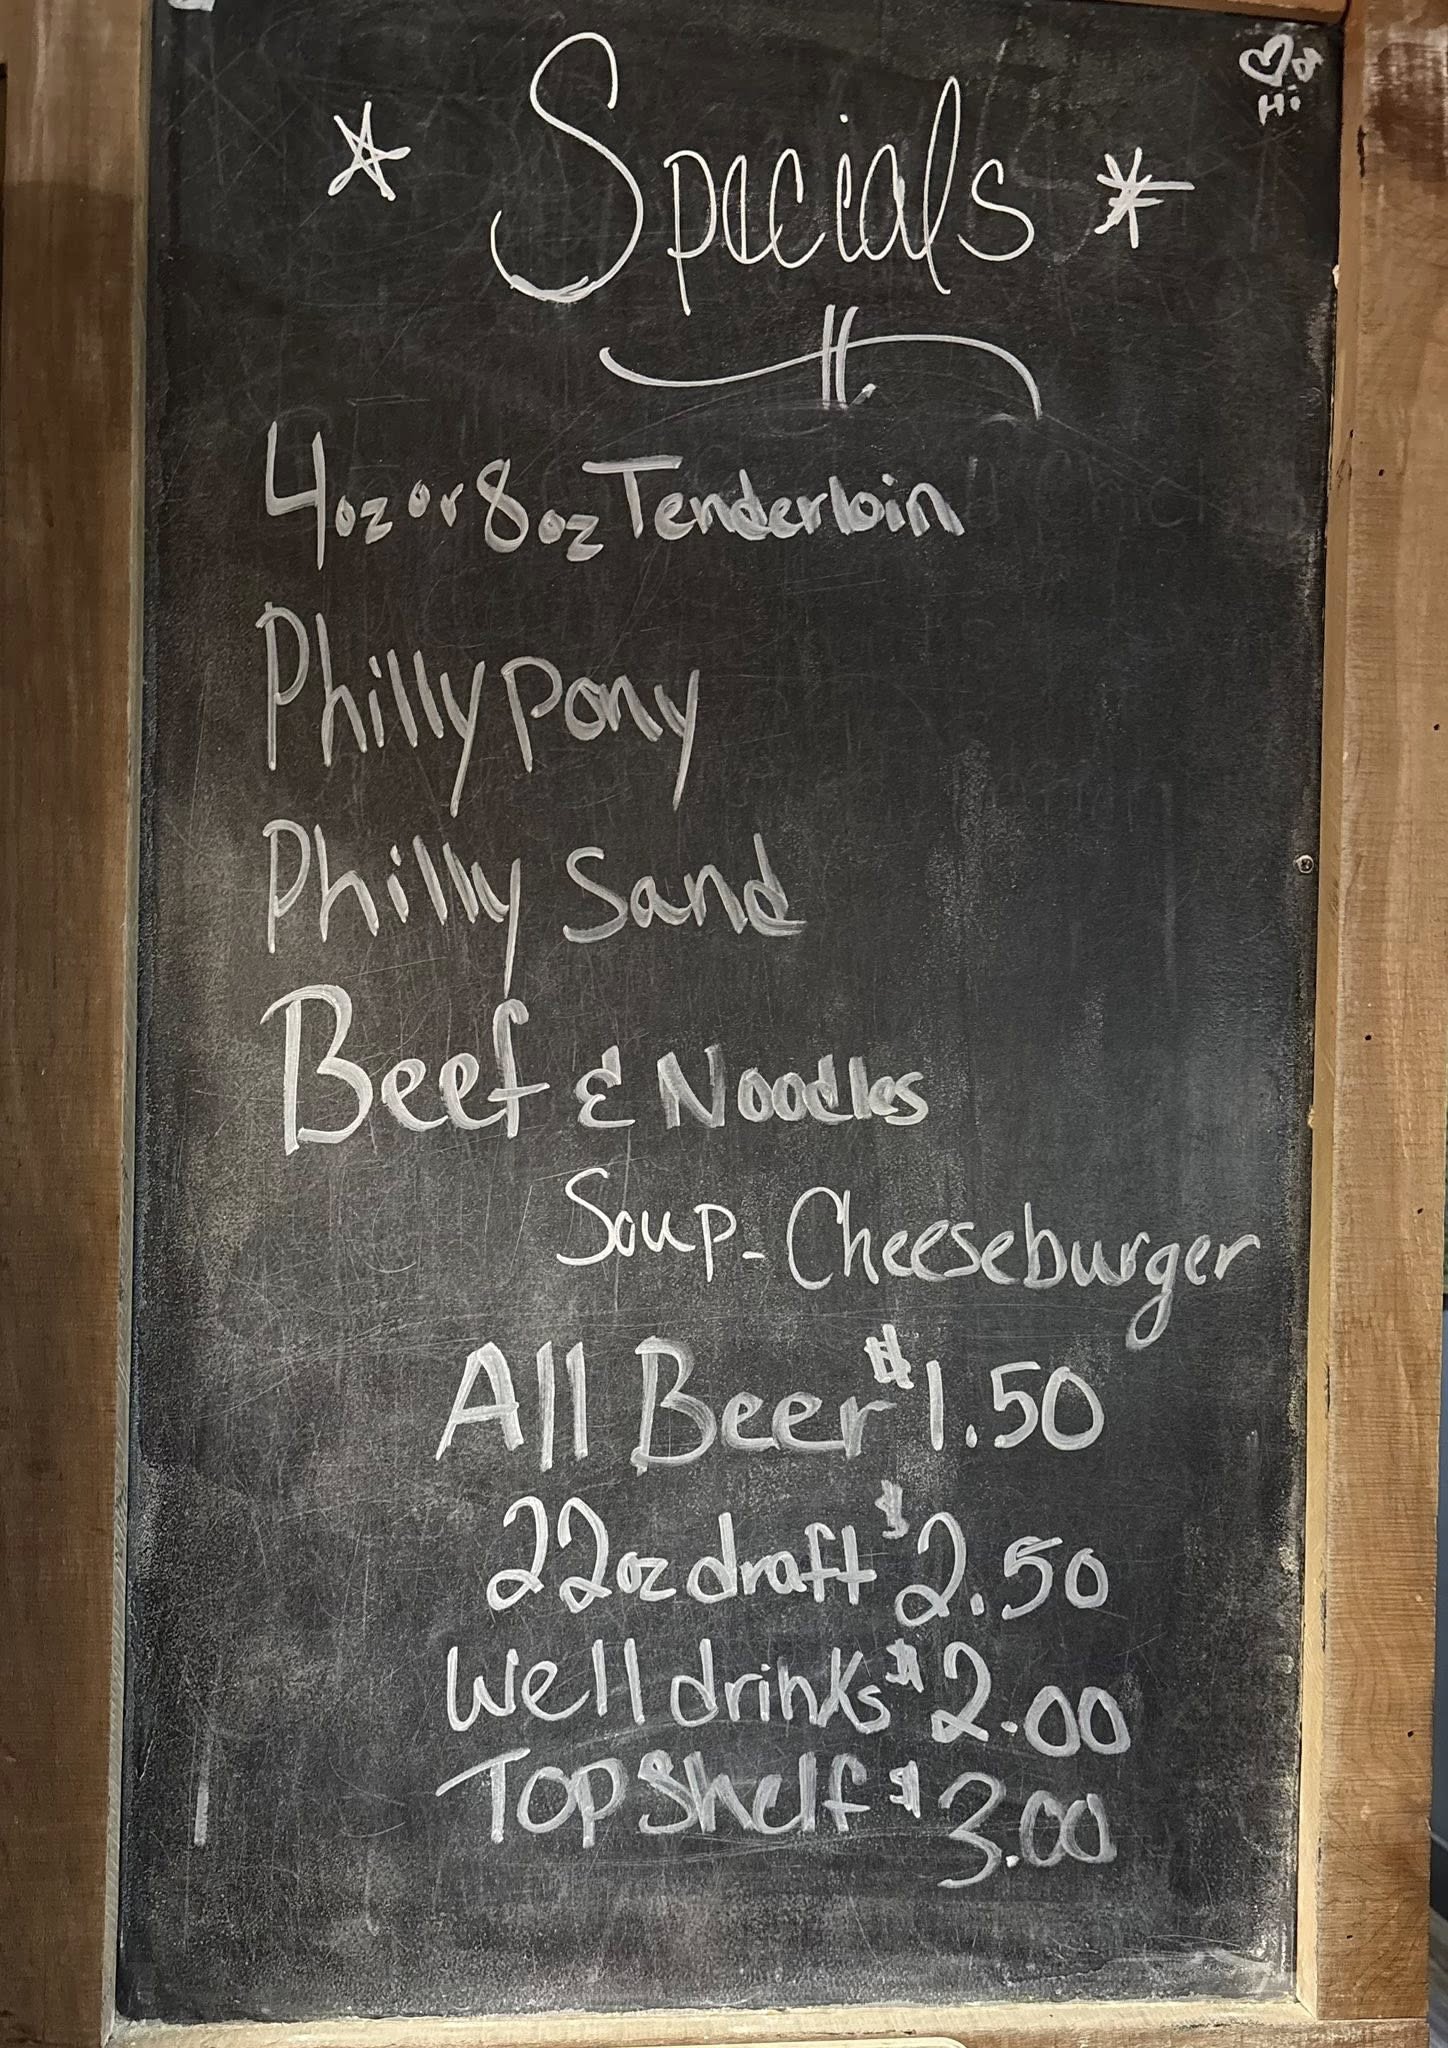 Hi
Specials
4oz or 8oz Tenderloin
Philly pony
Philly Sand
Beef & Noodles
Soup - Cheeseburger
All Beer $1.50
22oz draft $2.50
Well drinks $2.00
Top Shelf $3.00